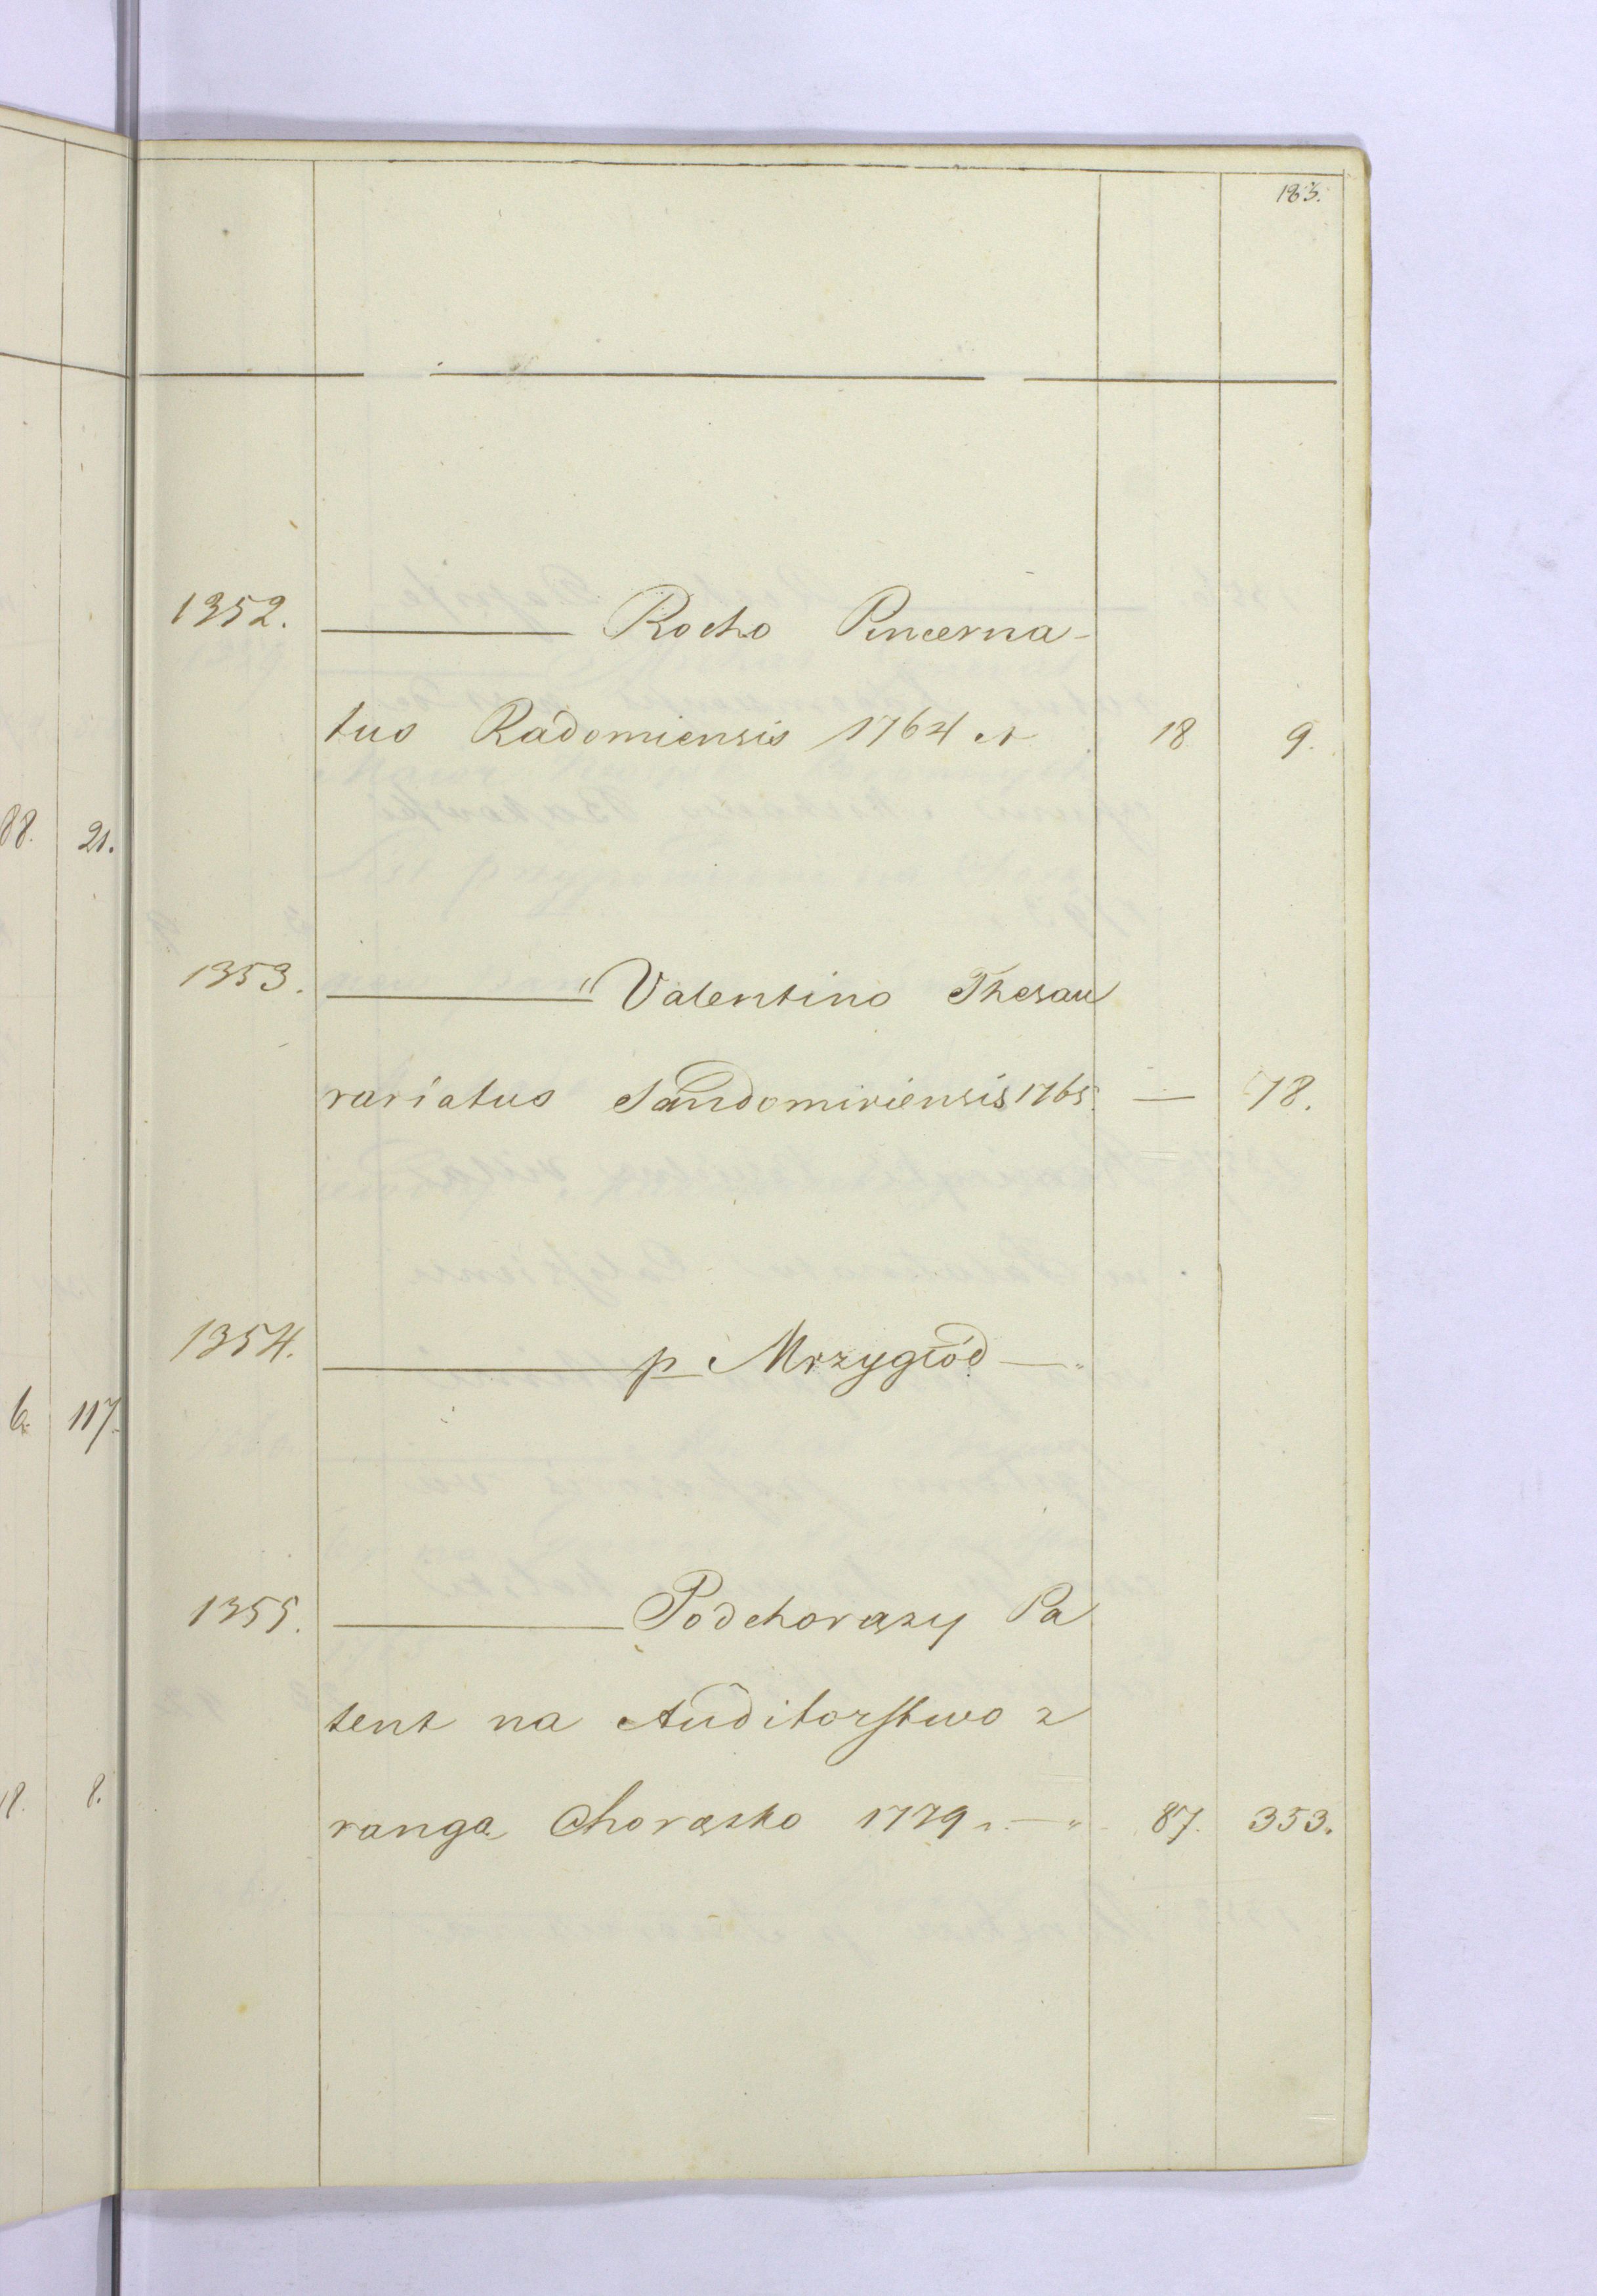 183.
1352. ——— Rocho Pincerna-
tus Radomiensis 1764 et 18 9.
88. 21.
1353. ——— " Valentino Thesau
rariatus Sandomiriensis 1765. — 78.
1354. ——— p Mrzygłód — "
6. 117.
1355. ——— Podchorąży Pa
tent na Auditorstwo z
rangą Chorąsko 1779 r. — " 87. 353.
8.